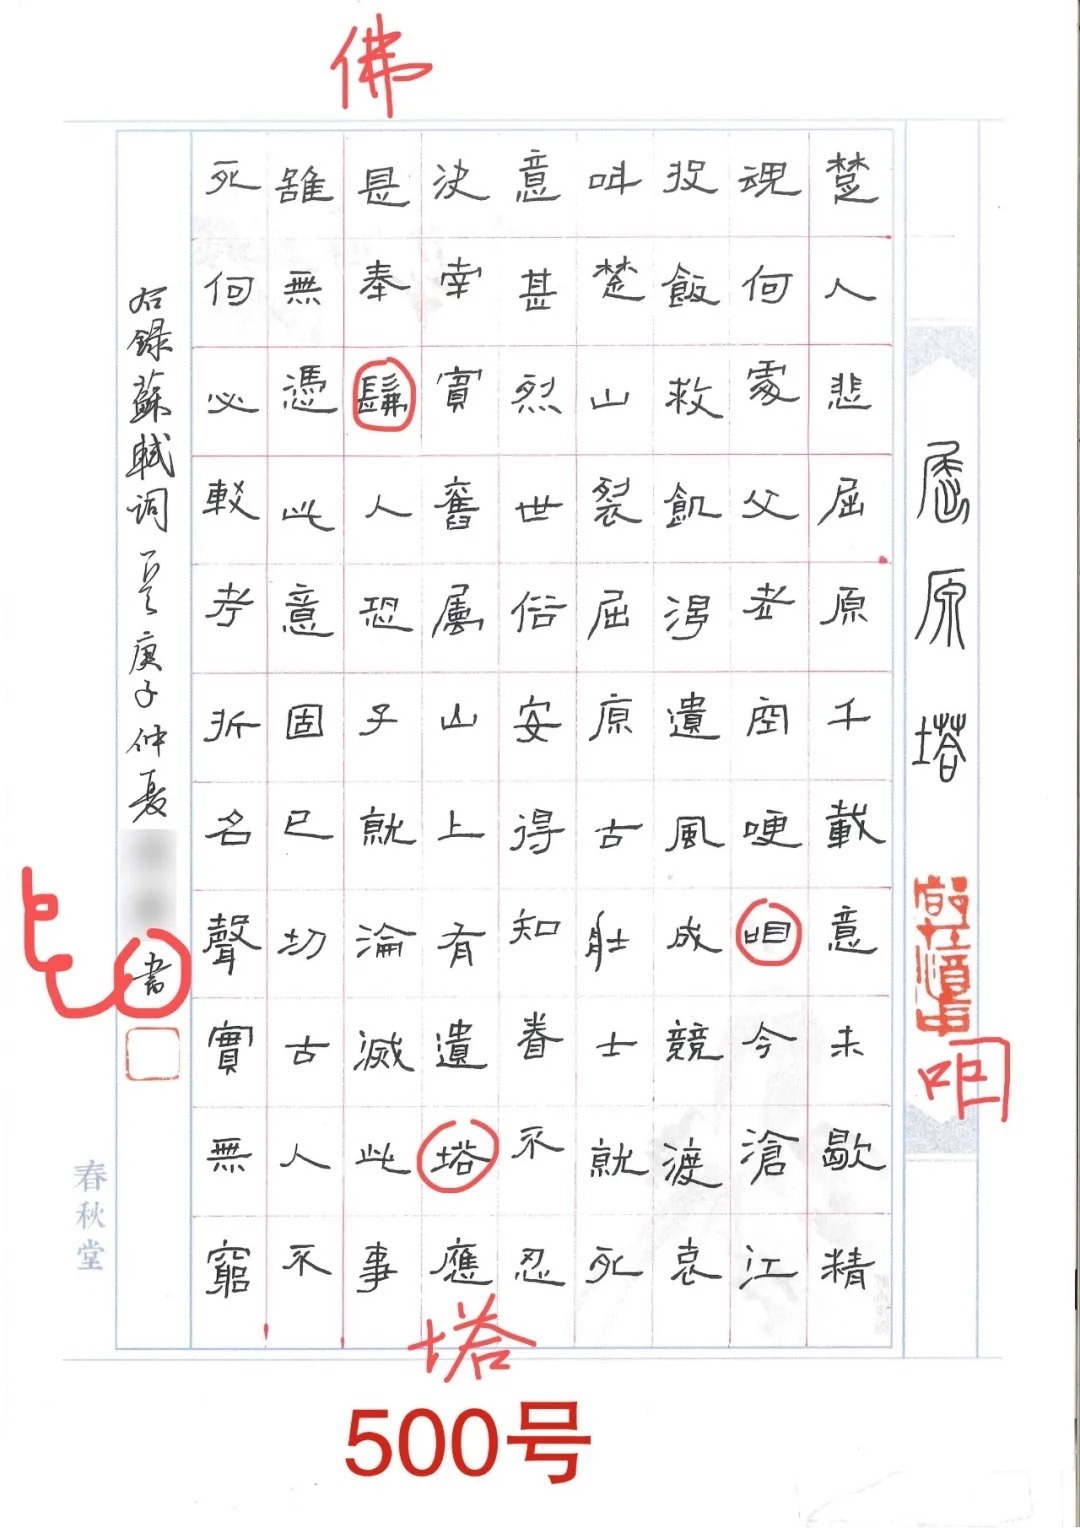 佛
屈原塔
楚人悲屈原千載意未歇精
魂何處父老空哽咽今滄江
投飯救飢渴遺風成競渡哀
叫楚山裂屈原古壯士就死
意甚烈世俗安得知眷不忍
決南賓舊屬山上有遺塔應
是奉髴人恐子就淪滅此事
雖無憑此意固已切古人不
死何必較考折名聲實無窮
右錄蘇軾词 庚子仲夏
書
春秋堂
塔
500号